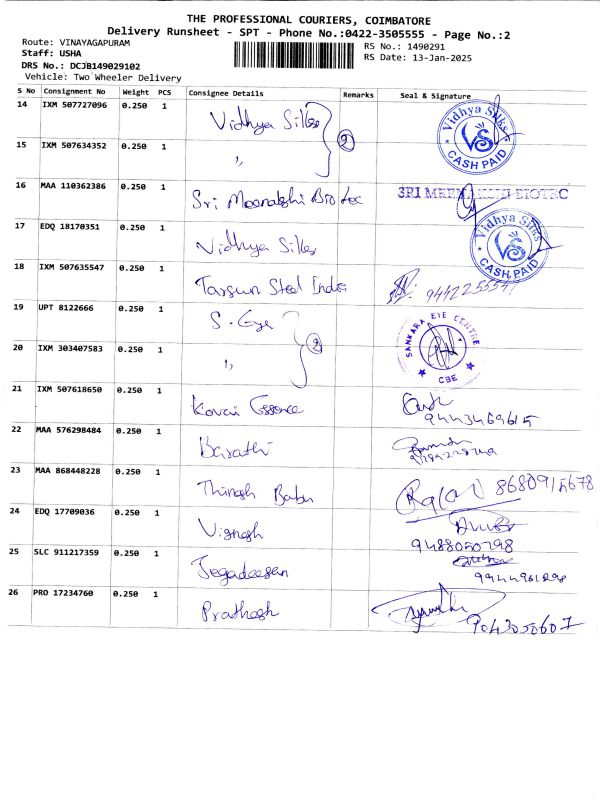 THE PROFESSIONAL COURIERS, COIMBATORE
Delivery Runsheet - SPT - Phone No.:0422-3505555 - Page No.:2
Route: VINAYAGAPURAM
RS No.: 1490291
Staff: USHA
RS Date: 13-Jan-2025
DRS No.: DCJB149029102
Vehicle: Two Wheeler Delivery
S No Consignment No Weight PCS Consignee Details Remarks Seal & Signature
14 IXM 507727096 0.250 1 Vidhya Silks Vidhya Silks VS CASH PAID
15 IXM 507634352 0.250 1 ,, 2
16 MAA 110362386 0.250 1 Sri Meenakshi Bio tec SRI MEENAKSHI BIOTEC
17 EDQ 18170351 0.250 1 Vidhya Silks Vidhya Silks VS CASH PAID
18 IXM 507635547 0.250 1 Tarsun Steel India
19 UPT 8122666 0.250 1 S. Eye SANKARA EYE CENTRE CBE
20 IXM 303407583 0.250 1 ,, 2
21 IXM 507618650 0.250 1 Kovai Essence
9443469615
22 MAA 576298484 0.250 1 Barathi
23 MAA 868448228 0.250 1 Thinesh Babu 8680915678
24 EDQ 17709036 0.250 1 Vignesh
9488050798
25 SLC 911217359 0.250 1 Jegadeesan
9944961298
26 PRO 17234760 0.250 1 Prathesh
9043050607